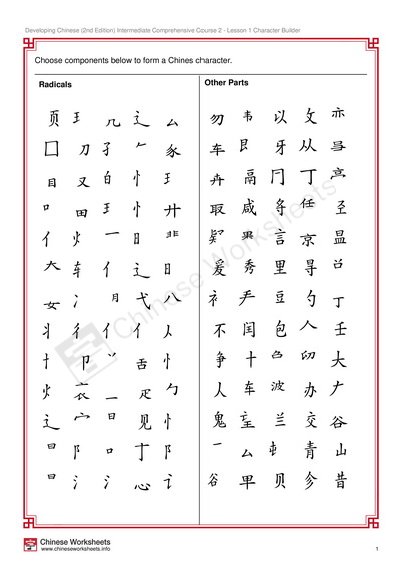 Developing Chinese (2nd Edition) Intermediate Comprehensive Course 2 - Lesson 1 Character Builder
Choose components below to form a Chines character.
Radicals
页 王 几 辶 厶
囗 刀 子 𠂉 豕
目 又 白 忄 王
口 田 王 忄 廾
亻 火 一 日 非
大 车 亻 辶 日
女 氵 月 弋 八
丬 彳 亻 亻 人
忄 卩 丷 舌 忄
火 衣 一 疋 勹
辶 宀 日 见 忄
日 阝 口 丁 阝
日 氵 氵 心 讠
Other Parts
勿 韦 以 攵
车 艮 牙 从
卉 鬲 冂 丁
取 咸 任
言 京 昷
爰 秀 里 寻
衤 豆 勺 丁
不 闰 包 人 壬
争 十 大
人 车 波 办
鬼 兰 交 谷
厶 青 山
谷 甲 贝 参 昔
Chinese Worksheets
Chinese Worksheets
www.chineseworksheets.info
1